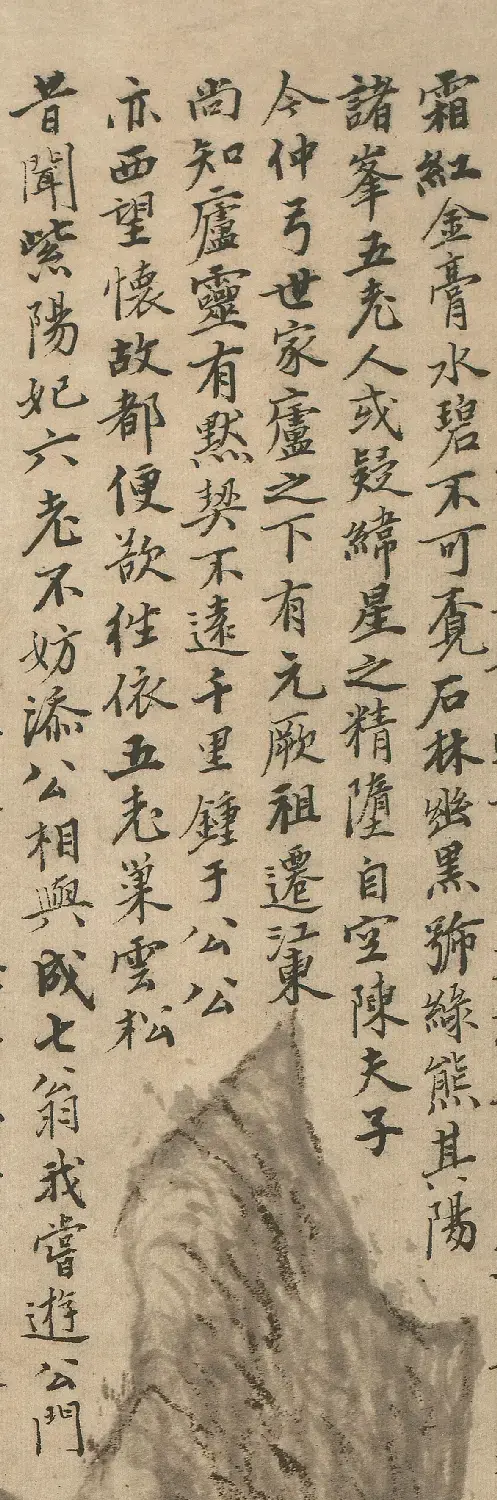 霜紅金膏水碧不可覔石林幽黑號綠熊其陽
諸峯五老人或疑緯星之精墮自空陳夫子
今仲弓世家廬之下有元厥祖遷江東
尚知廬靈有默契不遠千里鍾于公公
亦西望懷故都便欲往依五老巢雲松
昔聞紫陽妃六老不妨添公相與成七翁我嘗遊公門